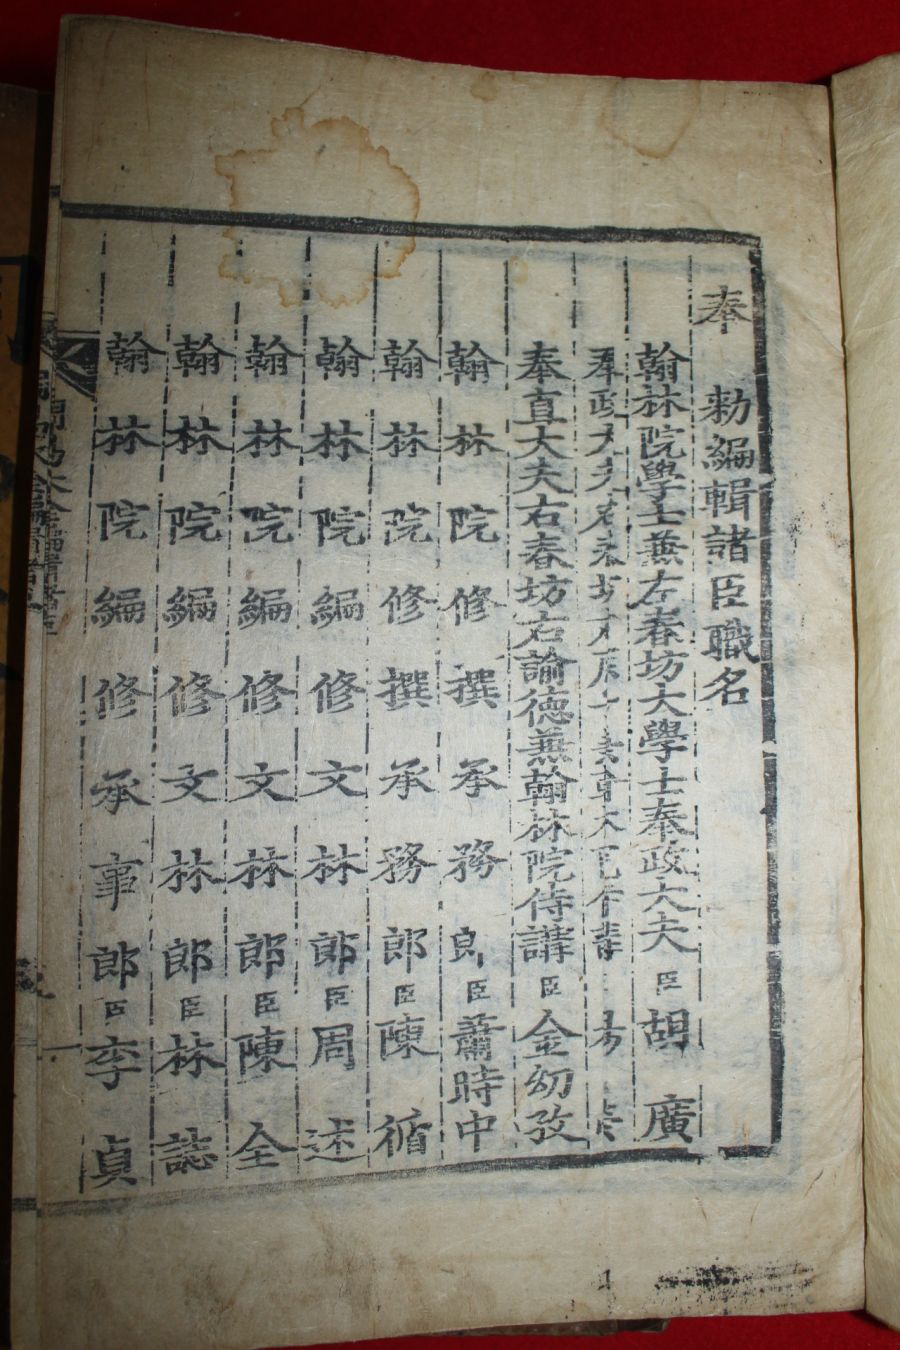 奉 勅編輯諸臣職名
翰林院學士兼左春坊大學士奉政大夫臣胡 廣
奉政大夫右春坊右庶子兼翰林院侍講 楊 榮
奉直大夫右春坊右諭德兼翰林院侍講臣金幼孜
翰林院修撰承務郎臣蕭時中
翰林院修撰承務郎臣陳 循
翰林院編修文林郎臣周 述
翰林院編修文林郎臣陳 全
翰林院編修文林郎臣林 誌
翰林院編修承事郎臣李 貞
一